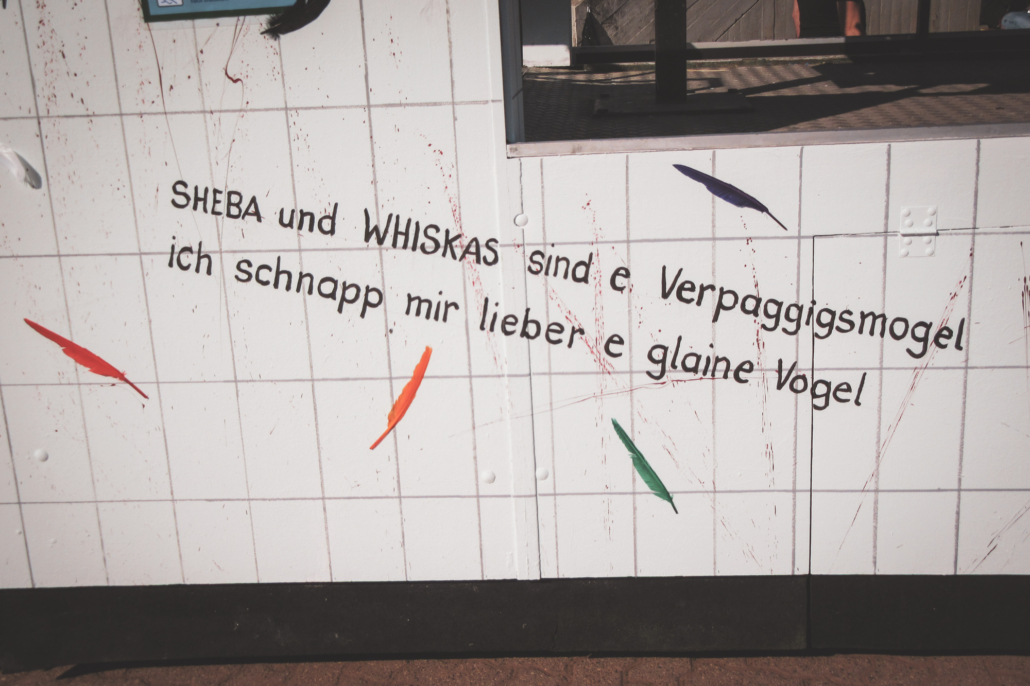 SHEBA und WHISKAS sind e Verpaggigsmogel
ich schnapp mir lieber e glaine Vogel